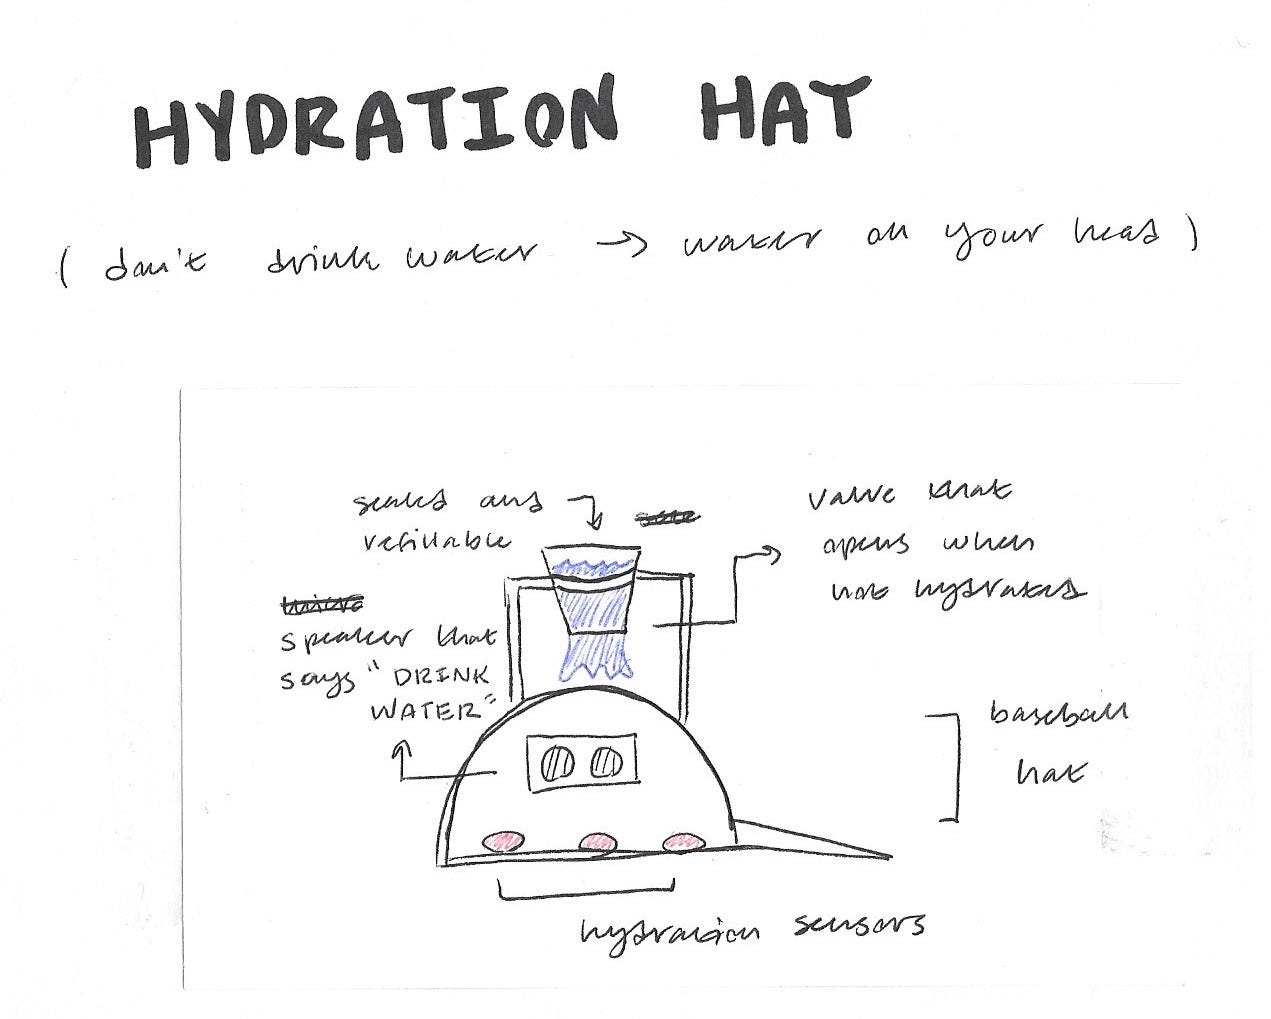 HYDRATION HAT
(don't drink water → water on your head)
sealed and
refillable
valve that
opens when
not hydrated
speaker that
says "DRINK
WATER"
baseball
hat
hydration sensors